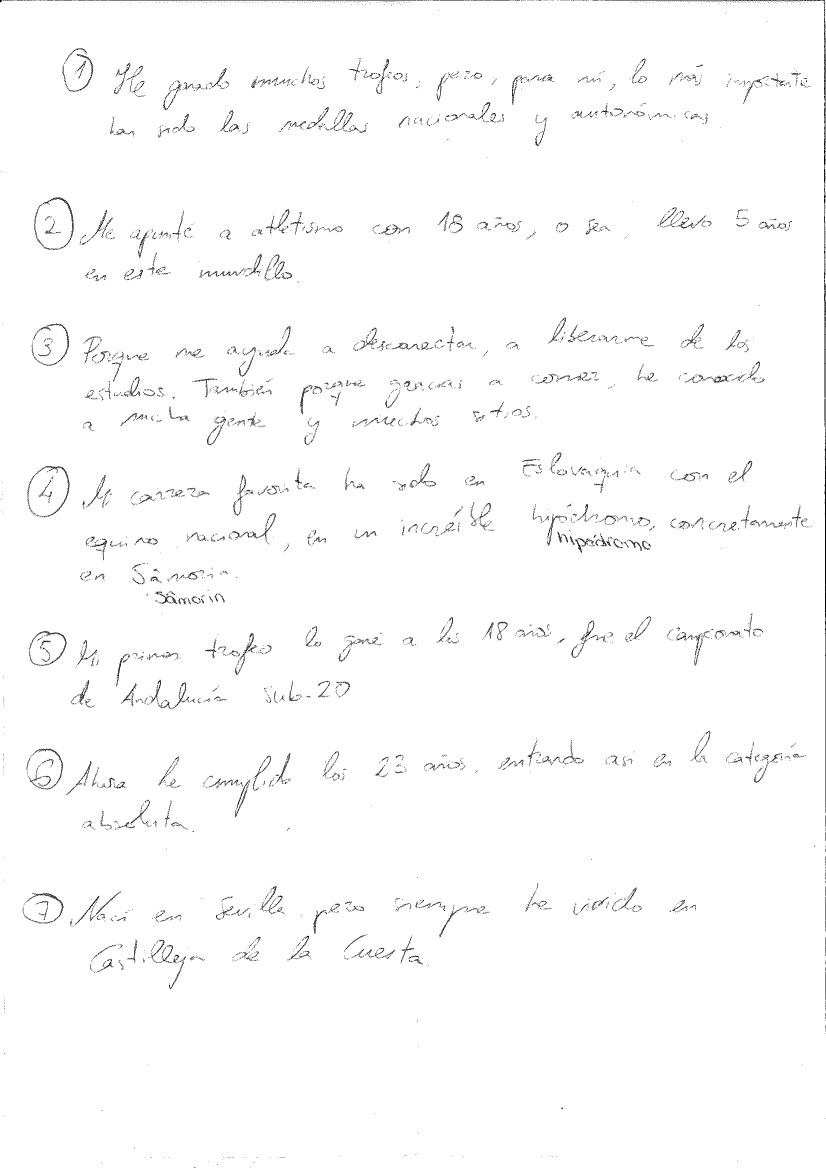 ① He ganado muchos trofeos, pero, para mí, lo más importante
han sido las medallas nacionales y autonómicas
② Me apunté a atletismo con 18 años, o sea, llevo 5 años
en este mundillo.
③ Porque me ayuda a desconectar, a liberarme de los
estudios. También porque gracias a correr, he conocido
a mucha gente y muchos sitios.
④ Mi carrera favorita ha sido en Eslovaquia con el
equipo nacional, en un increíble hipódromo, concretamente
hipódromo
en Sâmorin.
Sâmorin
⑤ Mi primer trofeo lo gané a los 18 años, fue el campeonato
de Andalucía sub-20
⑥ Ahora he cumplido los 23 años, entrando así en la categoría
absoluta.
⑦ Nací en Sevilla, pero siempre he vivido en
Castilleja de la Cuesta.